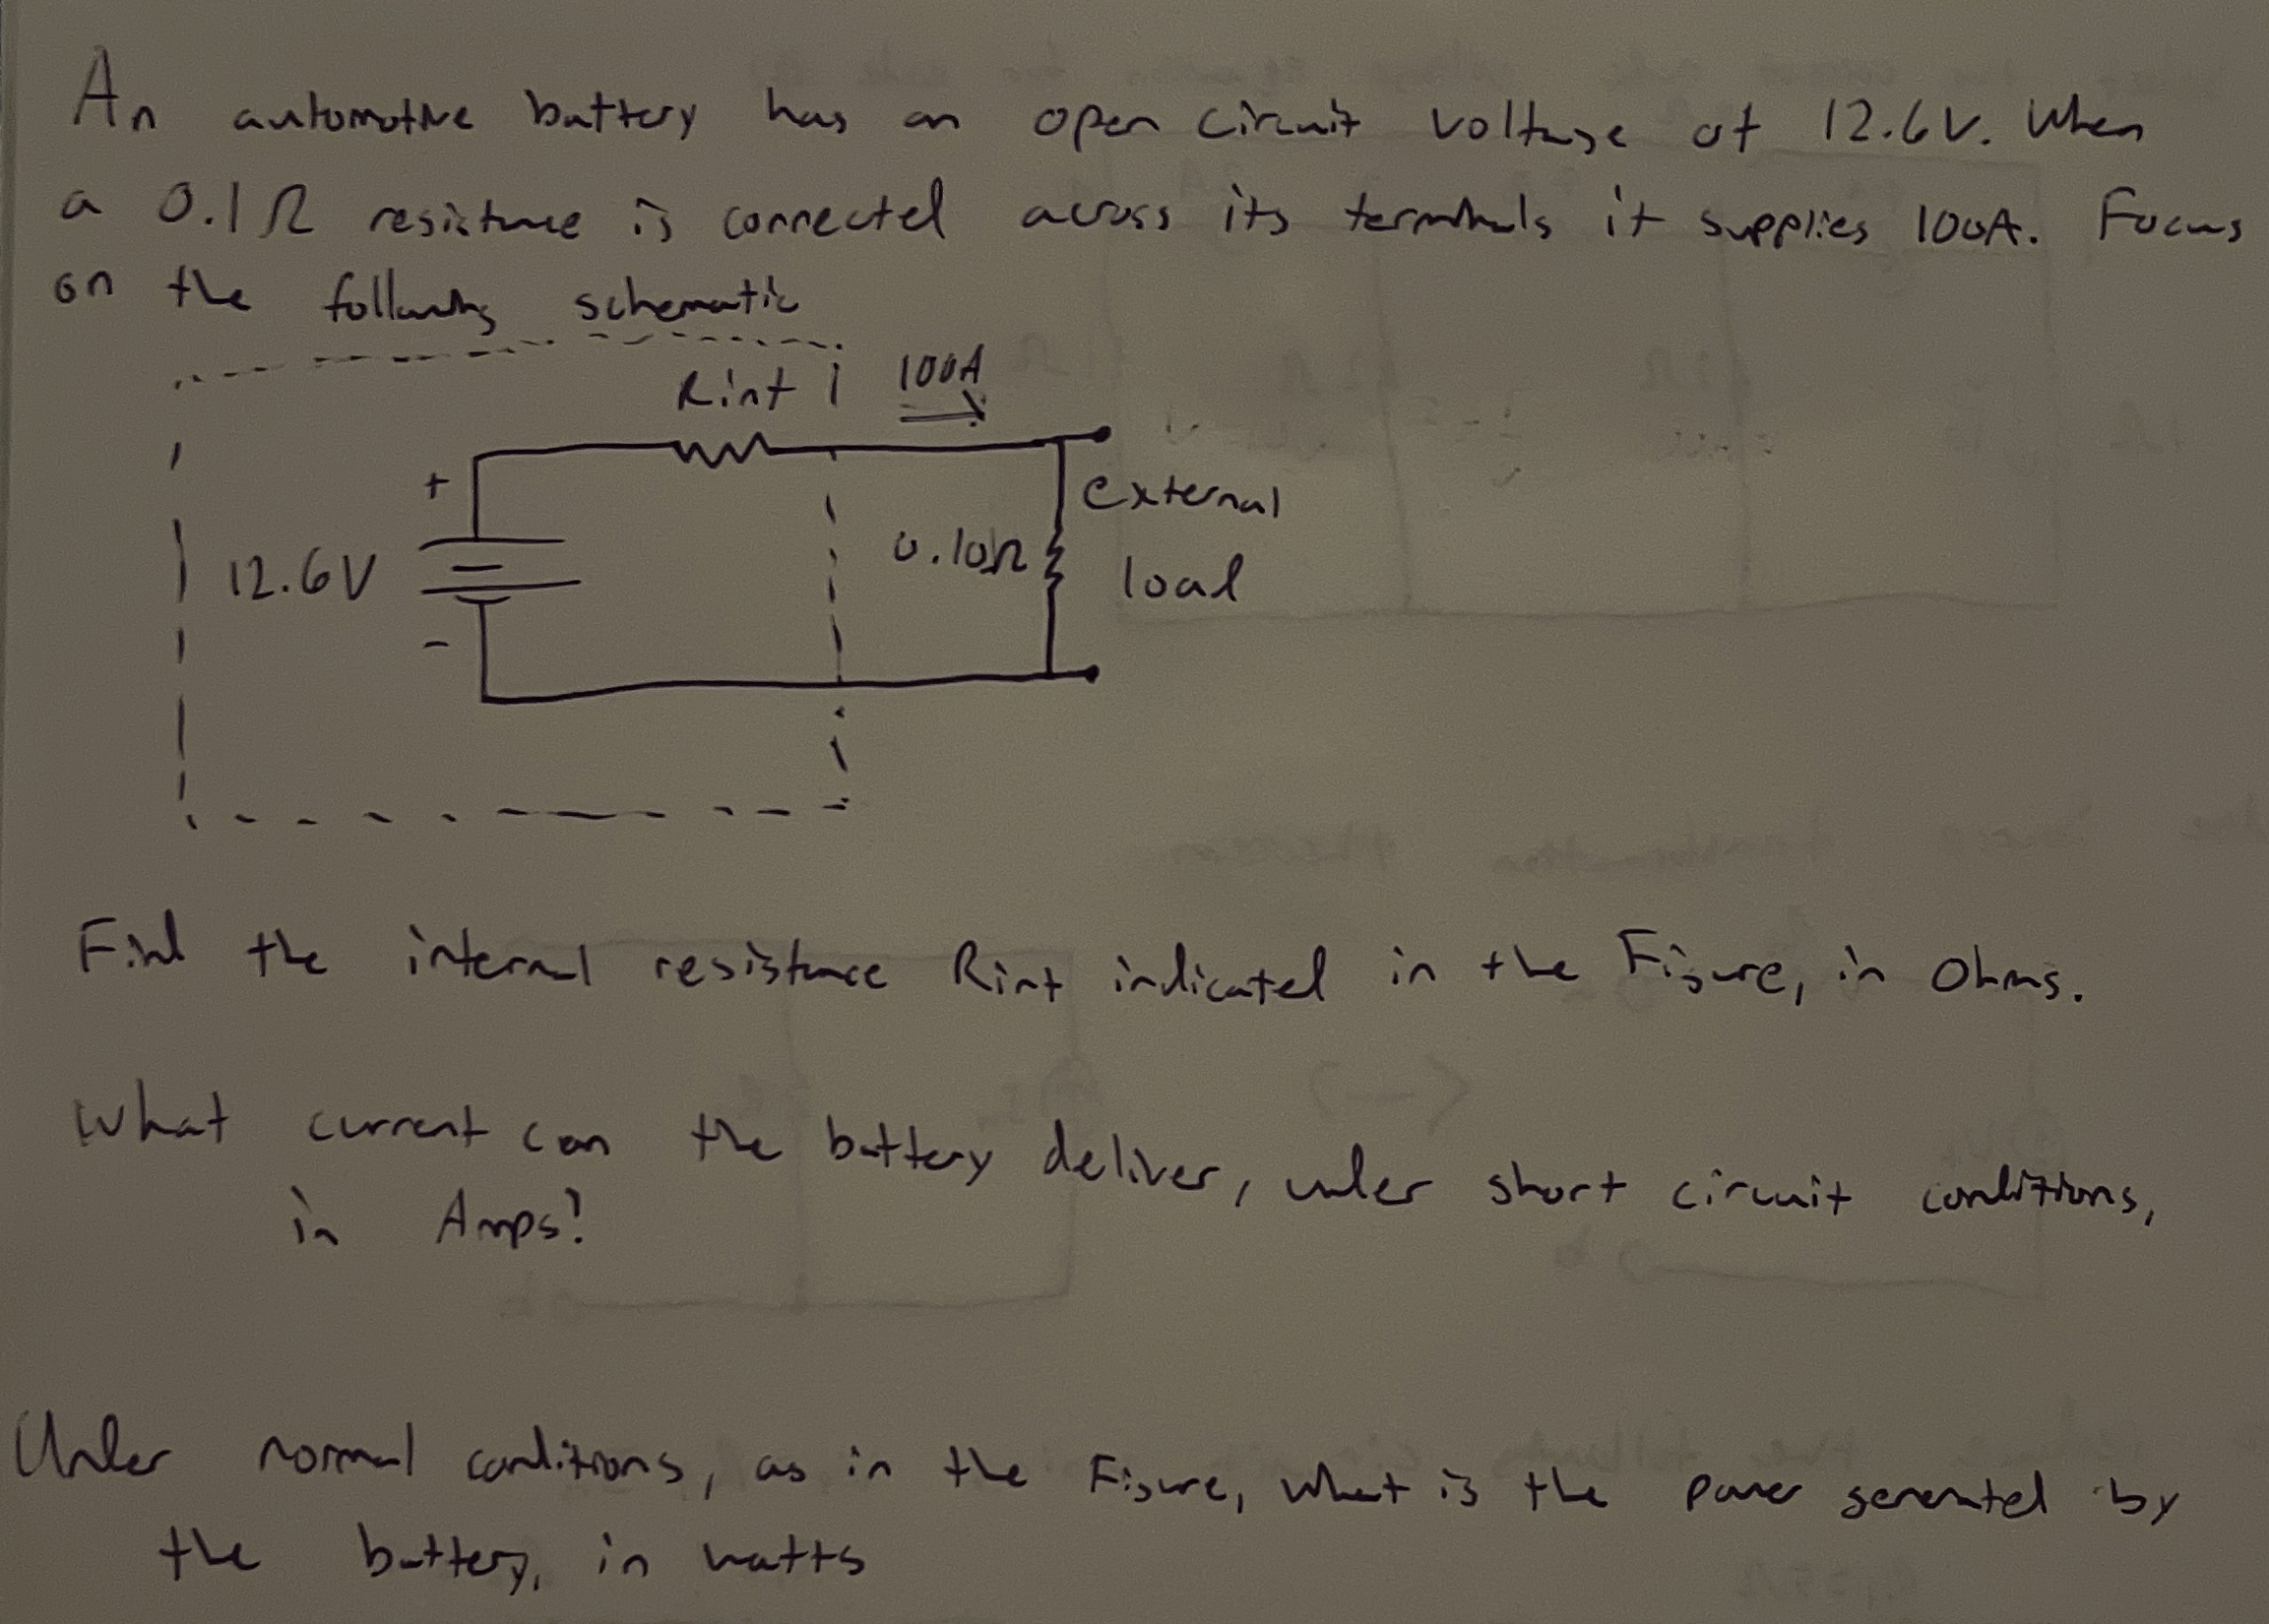 An automotive battery has an open circuit voltage of 12.6V. When
a 0.1Ω resistance is connected across its terminals it supplies 100A. Focus
on the following schematic
Rint
100A
+
external
12.6V
0.10Ω
load
-
Find the internal resistance Rint indicated in the Figure, in Ohms.
What current can the battery deliver, under short circuit conditions,
in Amps?
Under normal conditions, as in the Figure, what is the power generated by
the battery, in watts